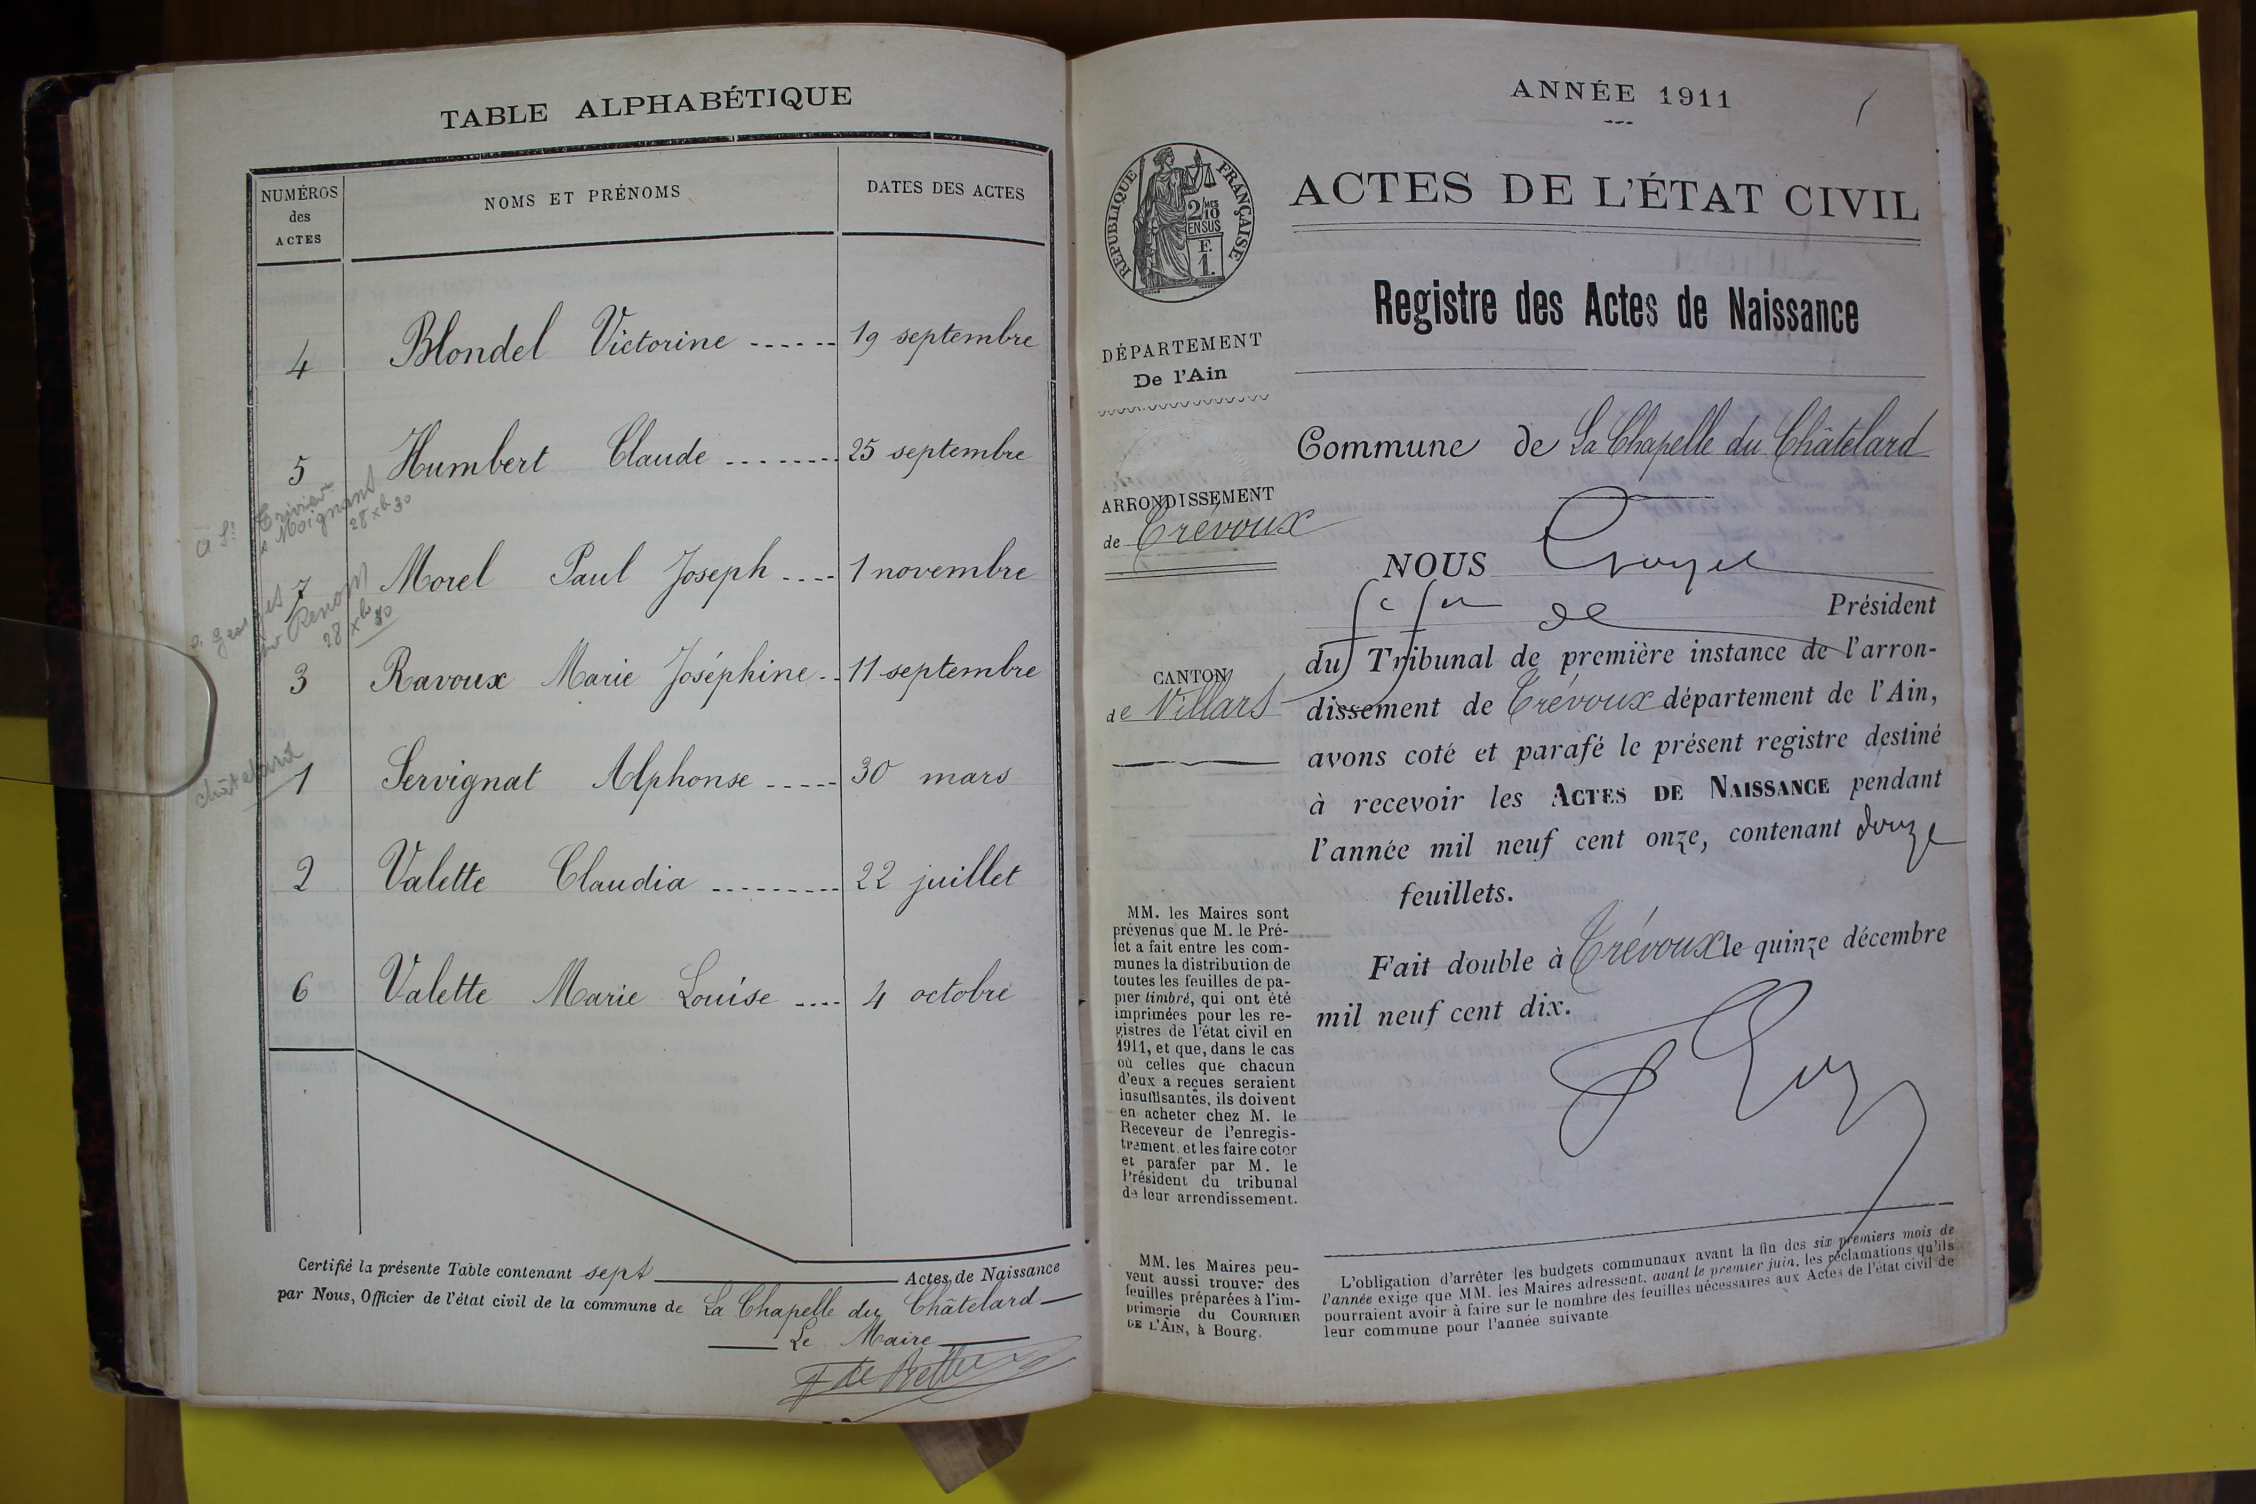 TABLE ALPHABÉTIQUE
NUMÉROS des ACTES
NOMS ET PRÉNOMS
DATES DES ACTES
4 Blondel Victorine ------ 19 septembre
5 Humbert Claude -------- 25 septembre
à St Trivier s Moignans
28 xb 30
7 Morel Paul Joseph ---- 1 novembre
Renom
28 xb 30
3 Ravoux Marie Joséphine -- 11 septembre
châtelard
1 Servignat Alphonse ----- 30 mars
2 Valette Claudia --------- 22 juillet
6 Valette Marie Louise ---- 4 octobre
Certifié la présente Table contenant sept Actes de Naissance
par Nous, Officier de l'état civil de la commune de La Chapelle du Châtelard
Le Maire
ANNÉE 1911
RÉPUBLIQUE FRANÇAISE
2/10 EN SUS
F.
1.
ACTES DE L'ÉTAT CIVIL
Registre des Actes de Naissance
DÉPARTEMENT
De l'Ain
Commune de La Chapelle du Châtelard
ARRONDISSEMENT
de Trévoux
CANTON
de Villars
NOUS
Président
du Tribunal de première instance de l'arron-
dissement de Trévoux département de l'Ain,
avons coté et parafé le présent registre destiné
à recevoir les ACTES DE NAISSANCE pendant
l'année mil neuf cent onze, contenant douze
feuillets.
Fait double à Trévoux le quinze décembre
mil neuf cent dix.
MM. les Maires sont
prévenus que M. le Pré-
fet a fait entre les com-
munes la distribution de
toutes les feuilles de pa-
pier timbré, qui ont été
imprimées pour les re-
gistres de l'état civil en
1911, et que, dans le cas
où celles que chacun
d'eux a reçues seraient
insuffisantes, ils doivent
en acheter chez M. le
Receveur de l'enregis-
trement, et les faire coter
et parafer par M. le
Président du tribunal
de leur arrondissement.
MM. les Maires peu-
vent aussi trouver des
feuilles préparées à l'im-
primerie du COURRIER
DE L'AIN, à Bourg.
L'obligation d'arrêter les budgets communaux avant la fin des six premiers mois de
l'année exige que MM. les Maires adressent, avant le premier juin, les réclamations qu'ils
pourraient avoir à faire sur le nombre des feuilles nécessaires aux Actes de l'état civil de
leur commune pour l'année suivante.